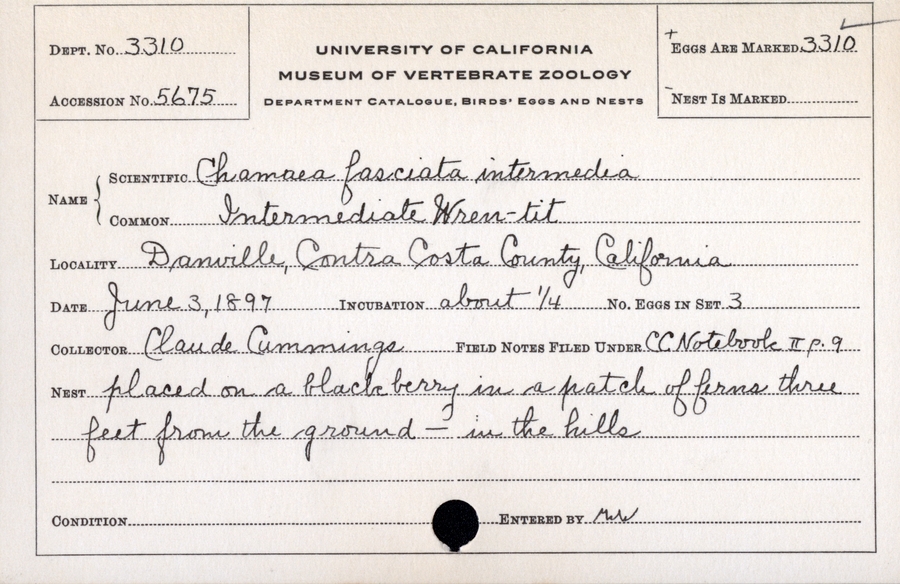 DEPT. NO. 3310
ACCESSION NO. 5675
UNIVERSITY OF CALIFORNIA
MUSEUM OF VERTEBRATE ZOOLOGY
DEPARTMENT CATALOGUE, BIRDS' EGGS AND NESTS
+ EGGS ARE MARKED 3310
- NEST IS MARKED
NAME
SCIENTIFIC Chamaea fasciata intermedia
COMMON Intermediate Wren-tit
LOCALITY Danville, Contra Costa County, California
DATE June 3, 1897 INCUBATION about 1/4 NO. EGGS IN SET 3
COLLECTOR Claude Cummings FIELD NOTES FILED UNDER CC Notebook II p. 9
NEST placed on a blackberry in a patch of ferns three
feet from the ground — in the hills
CONDITION ENTERED BY